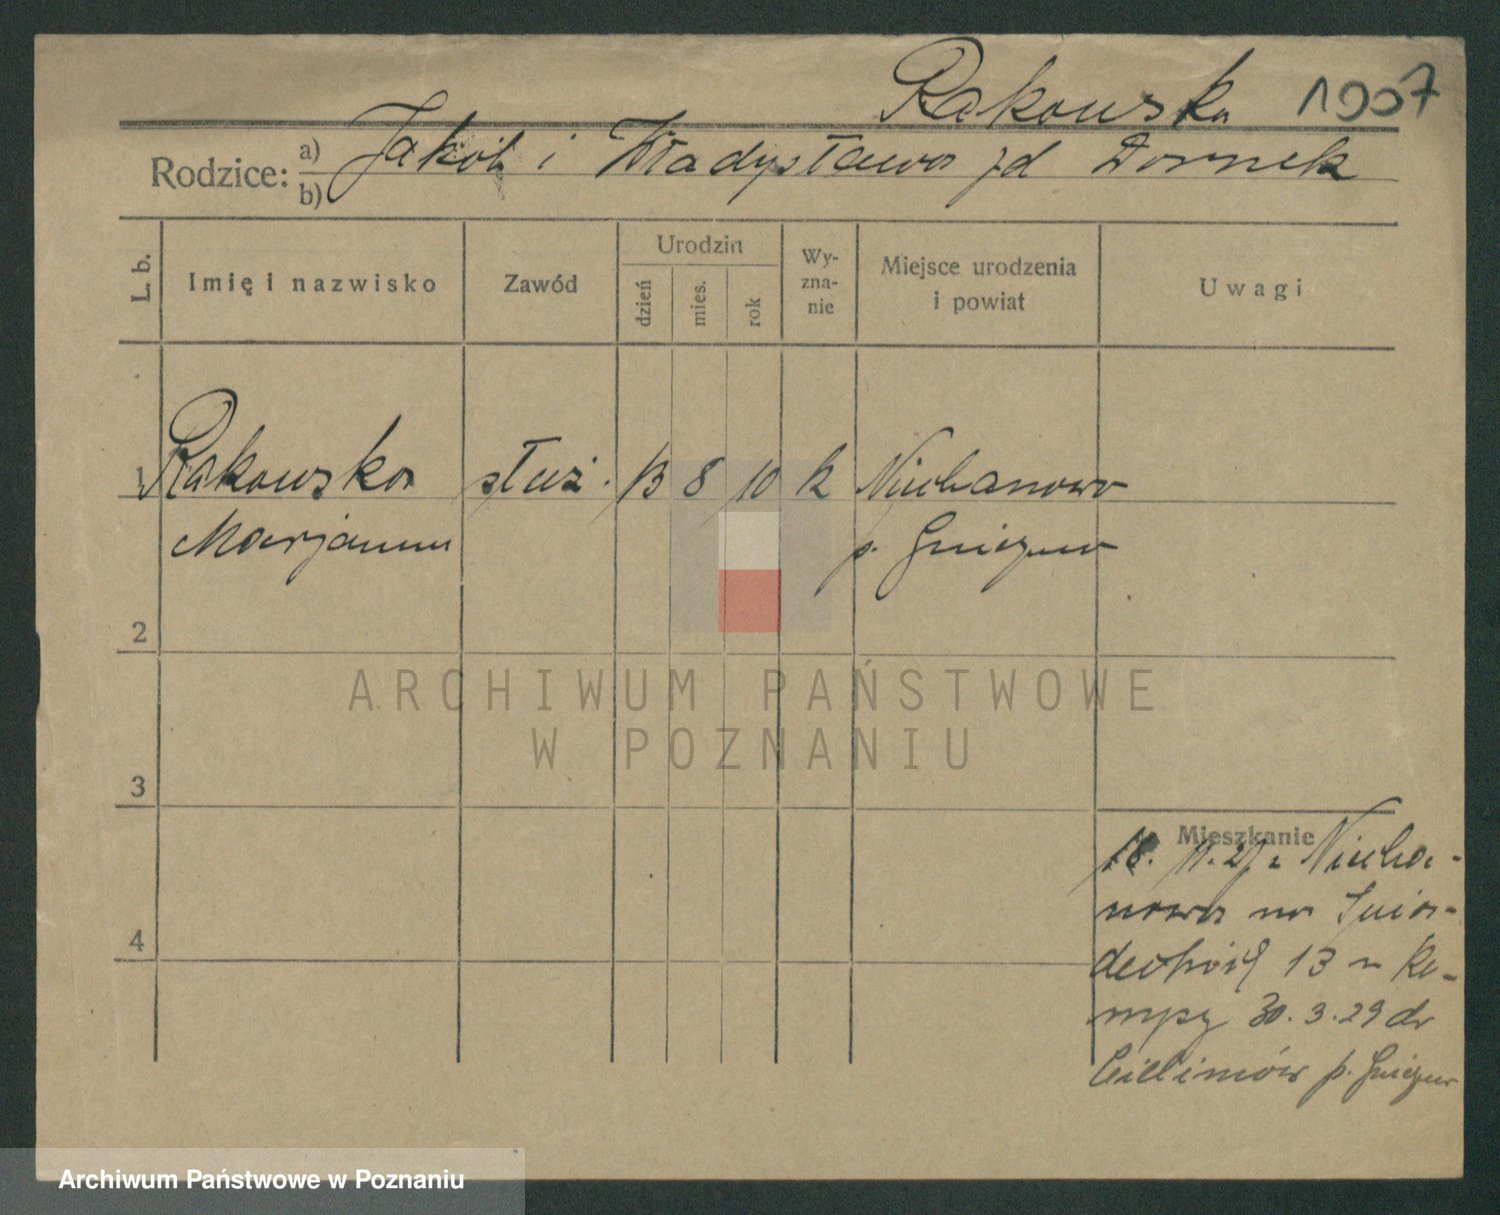 Rakowska 1907
Rodzice: a) Jakób i Władysława zd Dornek
b)
L. b.
Imię i nazwisko
Zawód
Urodzin
dzień
mies.
rok
Wy-
zna-
nie
Miejsce urodzenia
i powiat
Uwagi
1 Rakowska służ. 13 8 10 k Niechanowo
Marjanna p. Gniezno
2
ARCHIWUM PAŃSTWOWE
W POZNANIU
3
Mieszkanie
18. 11. 27 z Niecha-
nowa na
13 u Ke-
mpy 30. 3. 29 do
p. Gniezno
4
Archiwum Państwowe w Poznaniu